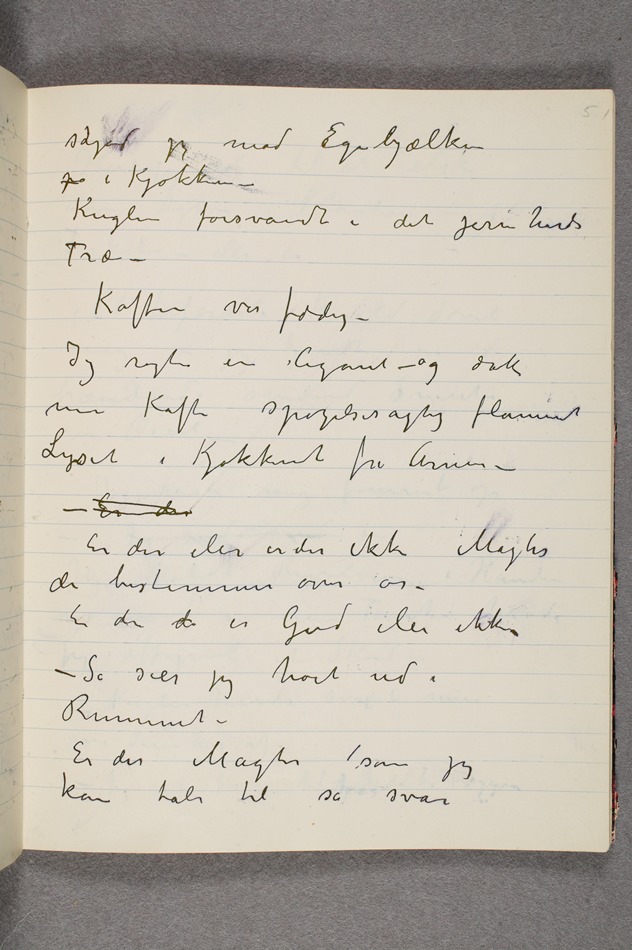 jeg mod Egebjælken
på i Kjøkkenen
Kuglen forsvandt i det jernhards
Træ –
Kaffen var færdig –
Jeg røgte en sigaret – og drak
min Kaffe spøgelsesagtig flammet
Lyset i Kjøkkenet fra Arnen –
– Er der
Er der eller er der ikke Magter
der bestemmer over os –
Er der de er Gud eller ikke
– Så sier jeg høit ud i
Rummet –
Er der Magter som jeg
kan tale til så svar
51